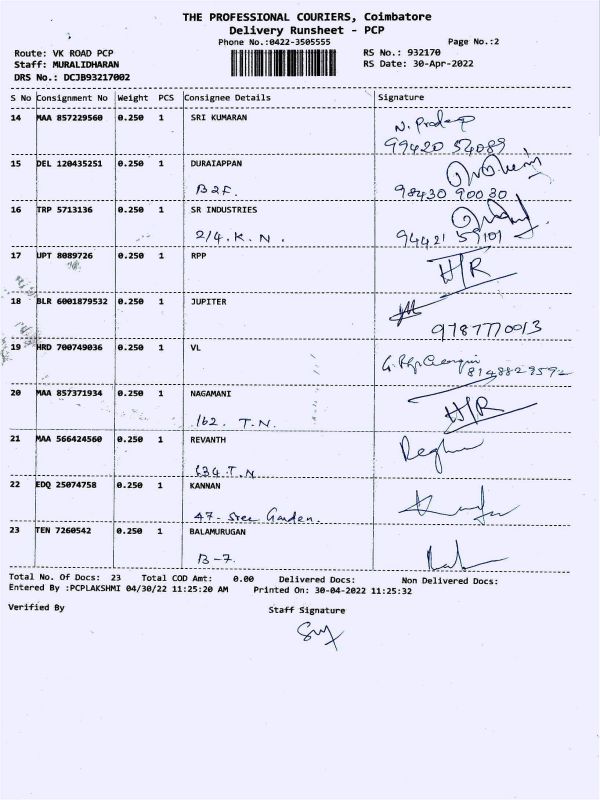 THE PROFESSIONAL COURIERS, Coimbatore
Delivery Runsheet - PCP
Phone No.:0422-3505555 Page No.:2
Route: VK ROAD PCP RS No.: 932170
Staff: MURALIDHARAN RS Date: 30-Apr-2022
DRS No.: DCJB93217002
S No Consignment No Weight PCS Consignee Details Signature
14 MAA 857229560 0.250 1 SRI KUMARAN N. Pradeep
99420 54089
15 DEL 120435251 0.250 1 DURAIAPPAN
B2F. 98430 90030
16 TRP 5713136 0.250 1 SR INDUSTRIES
2/4. K. N. 94421 59101
17 UPT 8089726 0.250 1 RPP H/R
18 BLR 6001879532 0.250 1 JUPITER
9787770013
19 HRD 700749036 0.250 1 VL
8148829592
20 MAA 857371934 0.250 1 NAGAMANI H/R
162. T.N.
21 MAA 566424560 0.250 1 REVANTH
634.T.N
22 EDQ 25074758 0.250 1 KANNAN
47- Sree Garden.
23 TEN 7260542 0.250 1 BALAMURUGAN
B-7.
Total No. Of Docs: 23 Total COD Amt: 0.00 Delivered Docs: Non Delivered Docs:
Entered By :PCPLAKSHMI 04/30/22 11:25:20 AM Printed On: 30-04-2022 11:25:32
Verified By Staff Signature